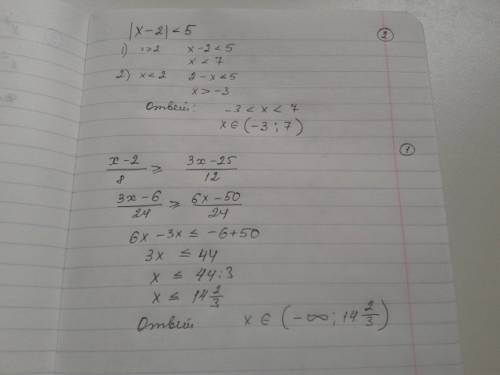 ② 
|x-2|<5
1) x>2 x-2<5
x<7
2) x<2 2-x<5
x>-3
Ответ: -3<x<7
x∈(-3;7)
①
x-2/8 ⩾ 3x-25/12
3x-6/24 ⩾ 6x-50/24
6x-3x ≤ -6+50
3x ≤ 44
x ≤ 44:3
x ≤ 14 2/3
Ответ x∈(-∞; 14 2/3)